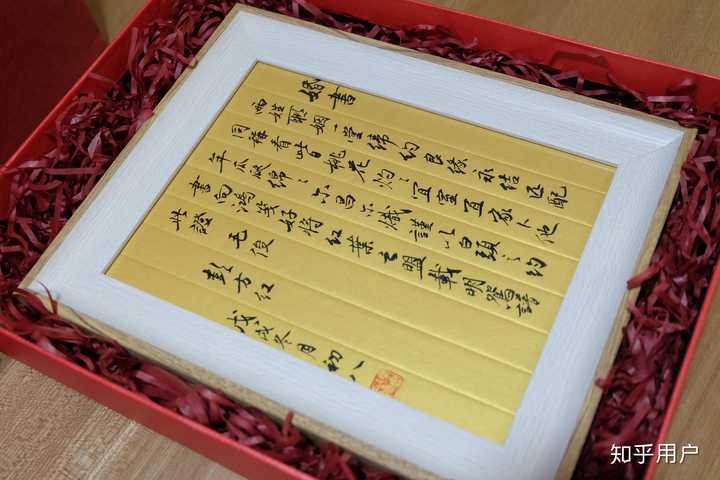 婚書
两姓聯姻一堂締約良緣永結匹配
同稱看此日桃花灼〻宜室宜家卜他
年瓜瓞綿〻尔昌尔熾謹以白頭之約
書向鴻箋好將紅葉之盟載明鴛譜
此證 毛俊
彭方红
戊戌冬月初八
知乎用户